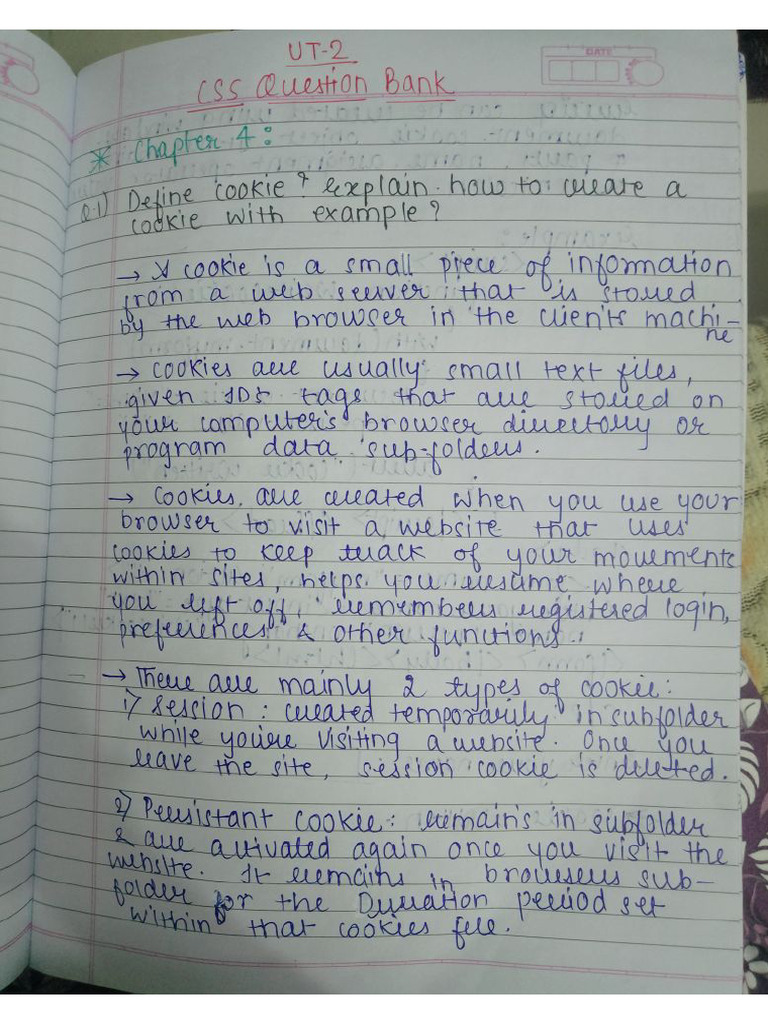 UT-2
DATE
CSS Question Bank
* Chapter 4:
Q.1) Define cookie & explain how to create a
cookie with example?
→ A cookie is a small piece of information
from a web server that is stored
by the web browser in the client's machi-
ne
→ Cookies are usually small text files,
given IDs tags that are stored on
your computer's browser directory or
program data sub-folders.
→ Cookies are created when you use your
browser to visit a website that uses
cookies to keep track of your movements
within sites, helps you resume where
you left off, remembers registered login,
preferences & other functions.
→ There are mainly 2 types of cookie:
1) Session : created temporarily in subfolder
while you're visiting a website. Once you
leave the site, session cookie is deleted.
2) Persistant cookie: remains in subfolder
& are activated again once you visit the
website. It remains in browsers sub-
folder for the Duration period set
within that cookies file.